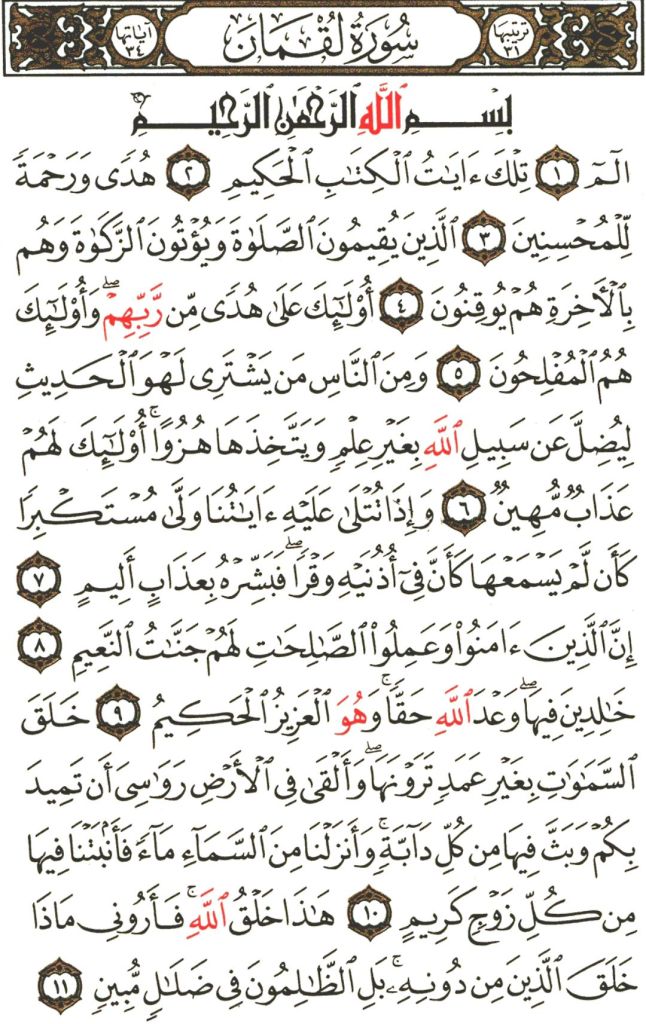 ترتيبها ٣١ سُورَةُ لُقْمَانَ آياتها ٣٤
بِسْمِ ٱللَّهِ ٱلرَّحْمَٰنِ ٱلرَّحِيمِ
الٓمٓ ١ تِلْكَ ءَايَٰتُ ٱلْكِتَٰبِ ٱلْحَكِيمِ ٢ هُدًى وَرَحْمَةً
لِّلْمُحْسِنِينَ ٣ ٱلَّذِينَ يُقِيمُونَ ٱلصَّلَوٰةَ وَيُؤْتُونَ ٱلزَّكَوٰةَ وَهُم
بِٱلْأَخِرَةِ هُمْ يُوقِنُونَ ٤ أُو۟لَٰٓئِكَ عَلَىٰ هُدًى مِّن رَّبِّهِمْ ۖ وَأُو۟لَٰٓئِكَ
هُمُ ٱلْمُفْلِحُونَ ٥ وَمِنَ ٱلنَّاسِ مَن يَشْتَرِى لَهْوَ ٱلْحَدِيثِ
لِيُضِلَّ عَن سَبِيلِ ٱللَّهِ بِغَيْرِ عِلْمٍ وَيَتَّخِذَهَا هُزُوًا ۚ أُو۟لَٰٓئِكَ لَهُمْ
عَذَابٌ مُّهِينٌ ٦ وَإِذَا تُتْلَىٰ عَلَيْهِ ءَايَٰتُنَا وَلَّىٰ مُسْتَكْبِرًا
كَأَن لَّمْ يَسْمَعْهَا كَأَنَّ فِىٓ أُذُنَيْهِ وَقْرًا ۖ فَبَشِّرْهُ بِعَذَابٍ أَلِيمٍ ٧
إِنَّ ٱلَّذِينَ ءَامَنُوا۟ وَعَمِلُوا۟ ٱلصَّٰلِحَٰتِ لَهُمْ جَنَّٰتُ ٱلنَّعِيمِ ٨
خَٰلِدِينَ فِيهَا ۖ وَعْدَ ٱللَّهِ حَقًّا ۚ وَهُوَ ٱلْعَزِيزُ ٱلْحَكِيمُ ٩ خَلَقَ
ٱلسَّمَٰوَٰتِ بِغَيْرِ عَمَدٍ تَرَوْنَهَا ۖ وَأَلْقَىٰ فِى ٱلْأَرْضِ رَوَٰسِىَ أَن تَمِيدَ
بِكُمْ وَبَثَّ فِيهَا مِن كُلِّ دَآبَّةٍ ۚ وَأَنزَلْنَا مِنَ ٱلسَّمَآءِ مَآءً فَأَنۢبَتْنَا فِيهَا
مِن كُلِّ زَوْجٍ كَرِيمٍ ١٠ هَٰذَا خَلْقُ ٱللَّهِ ۚ فَأَرُونِى مَاذَا
خَلَقَ ٱلَّذِينَ مِن دُونِهِۦ ۚ بَلِ ٱلظَّٰلِمُونَ فِى ضَلَٰلٍ مُّبِينٍ ١١